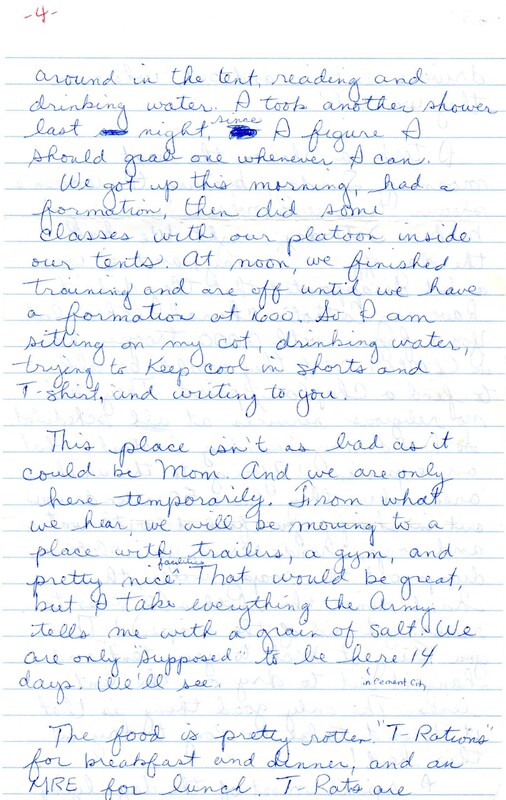 -4-
around in the tent, reading and
drinking water. I took another shower
last night, since I figure I
should grab one whenever I can.
We got up this morning, had a
formation, then did some
classes with our platoon inside
our tents. At noon, we finished
training and are off until we have
a formation at 1600. So I am
sitting on my cot, drinking water,
trying to keep cool in shorts and
T-shirt, and writing to you.
This place isn't as bad as it
could be Mom. And we are only
here temporarily. From what
we hear, we will be moving to a
place with trailers, a gym, and
pretty nice facilities. That would be great,
but I take everything the Army
tells me with a grain of salt. We
are only "supposed" to be here 14
days. We'll see. in Cement City
The food is pretty rotten. "T-Rations"
for breakfast and dinner, and an
MRE for lunch. T-Rats are